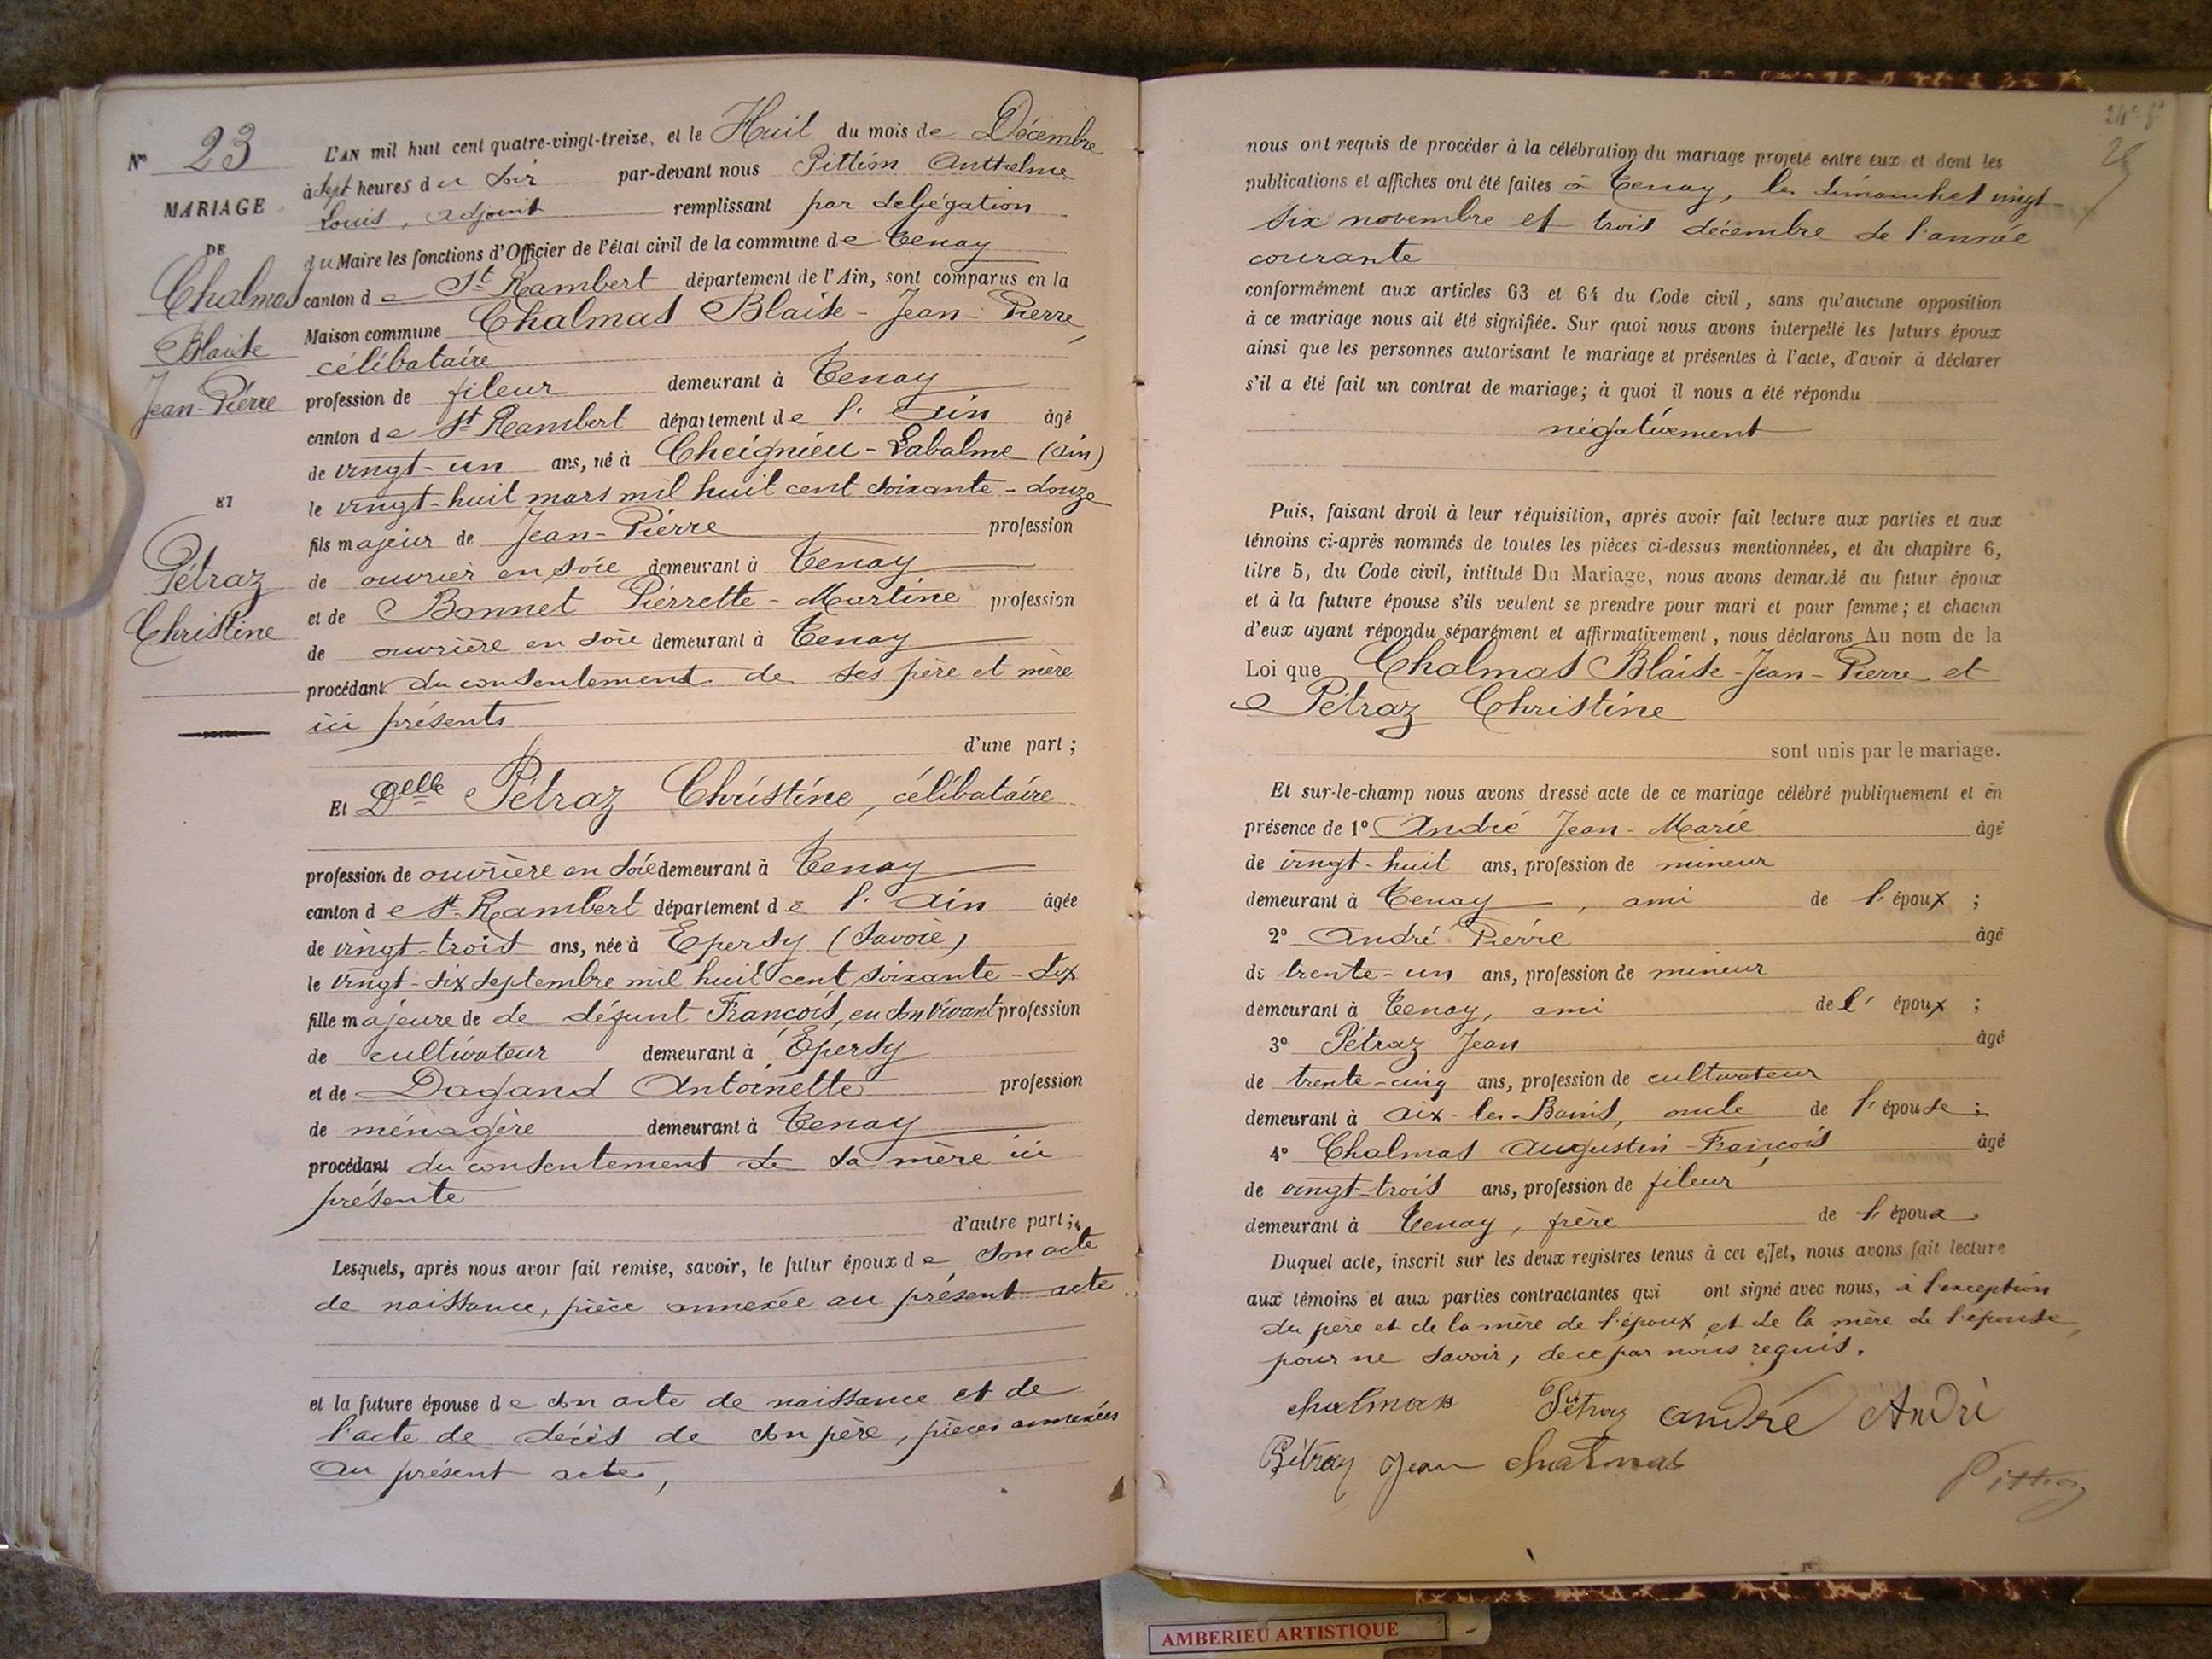 N° 23
MARIAGE
DE
Chalmas
Blaise
Jean-Pierre
ET
Pétraz
Christine
L'AN mil huit cent quatre-vingt-treize, et le Huit du mois de Décembre
à sept heures du soir par-devant nous Pittion Anthelme
Louis, adjoint remplissant par délégation
du Maire les fonctions d'Officier de l'état civil de la commune de Tenay
canton de St Rambert département de l'Ain, sont comparus en la
Maison commune Chalmas Blaise-Jean-Pierre,
célibataire
profession de fileur demeurant à Tenay
canton de St Rambert département de l'Ain âgé
de vingt-un ans, né à Cheignieu-Labalme (Ain)
le vingt-huit mars mil huit cent soixante-douze
fils majeur de Jean-Pierre profession
de ouvrier en soie demeurant à Tenay
et de Bonnet Pierrette-Martine profession
de ouvrière en soie demeurant à Tenay
procédant du consentement de ses père et mère
ici présents
d'une part ;
Et Delle Pétraz Christine, célibataire
profession de ouvrière en soie demeurant à Tenay
canton de St Rambert département de l'Ain âgée
de vingt-trois ans, née à Epersy (Savoie)
le vingt-six septembre mil huit cent soixante-dix
fille majeure de de défunt François, en son vivant profession
de cultivateur demeurant à Epersy
et de Dagand Antoinette profession
de ménagère demeurant à Tenay
procédant du consentement de sa mère ici
présente
d'autre part ;
Lesquels, après nous avoir fait remise, savoir, le futur époux de son acte
de naissance, pièce annexée au présent acte
et la future épouse de son acte de naissance et de
l'acte de décès de son père, pièces annexées
au présent acte,
24e ft
nous ont requis de procéder à la célébration du mariage projeté entre eux et dont les
publications et affiches ont été faites à Tenay, les dimanches vingt-
six novembre et trois décembre de l'année
courante
conformément aux articles 63 et 64 du Code civil, sans qu'aucune opposition
à ce mariage nous ait été signifiée. Sur quoi nous avons interpellé les futurs époux
ainsi que les personnes autorisant le mariage et présentes à l'acte, d'avoir à déclarer
s'il a été fait un contrat de mariage; à quoi il nous a été répondu
négativement
Puis, faisant droit à leur réquisition, après avoir fait lecture aux parties et aux
témoins ci-après nommés de toutes les pièces ci-dessus mentionnées, et du chapitre 6,
titre 5, du Code civil, intitulé Du Mariage, nous avons demandé au futur époux
et à la future épouse s'ils veulent se prendre pour mari et pour femme; et chacun
d'eux ayant répondu séparément et affirmativement, nous déclarons Au nom de la
Loi que Chalmas Blaise-Jean-Pierre et
Pétraz Christine
sont unis par le mariage.
Et sur-le-champ nous avons dressé acte de ce mariage célébré publiquement et en
présence de 1° André Jean-Marie âgé
de vingt-huit ans, profession de mineur
demeurant à Tenay, ami de l'époux ;
2° André Pierre âgé
de trente-un ans, profession de mineur
demeurant à Tenay, ami de l'époux ;
3° Pétraz Jean âgé
de trente-cinq ans, profession de cultivateur
demeurant à Aix-les-Bains, oncle de l'épouse ;
4° Chalmas Augustin-François âgé
de vingt-trois ans, profession de fileur
demeurant à Tenay, frère de l'époux
Duquel acte, inscrit sur les deux registres tenus à cet effet, nous avons fait lecture
aux témoins et aux parties contractantes qui ont signé avec nous, à l'exception
du père et de la mère de l'époux et de la mère de l'épouse,
pour ne savoir, de ce par nous requis.
chalmas Pétraz andré André
Pétraz Jean chalmas
Pittion
AMBERIEU ARTISTIQUE